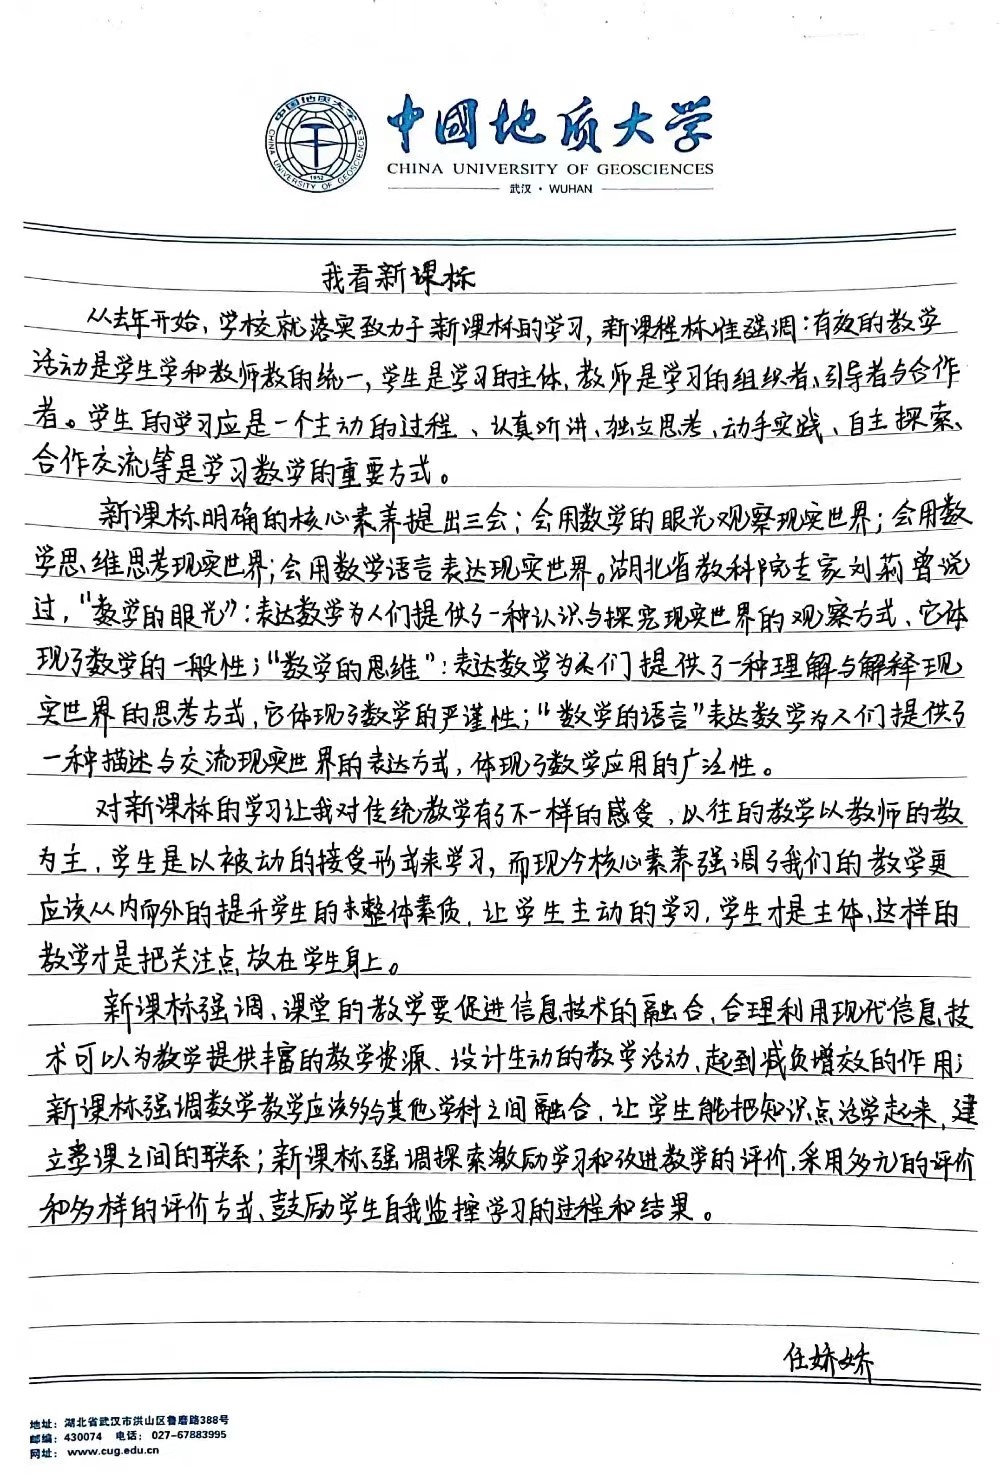 中国地质大学
CHINA UNIVERSITY OF GEOSCIENCES
武汉·WUHAN
中国地质大学
CHINA UNIVERSITY OF GEOSCIENCES
1952
我看新课标
从去年开始，学校就落实致力于新课标的学习，新课程标准强调：有效的教学
活动是学生学和教师教的统一，学生是学习的主体，教师是学习的组织者、引导者与合作
者。学生的学习应是一个主动的过程、认真听讲、独立思考、动手实践、自主探索、
合作交流等是学习数学的重要方式。
新课标明确的核心素养提出三会；会用数学的眼光观察现实世界；会用数
学思维思考现实世界；会用数学语言表达现实世界。湖北省教科院专家刘莉曾说
过，“数学的眼光”：表达数学为人们提供了一种认识与探究现实世界的观察方式、它体
现了数学的一般性；“数学的思维”：表达数学为人们提供了一种理解与解释现
实世界的思考方式，它体现了数学的严谨性；“数学的语言”表达数学为人们提供了
一种描述与交流现实世界的表达方式，体现了数学应用的广泛性。
对新课标的学习让我对传统教学有了不一样的感受，以往的教学以教师的教
为主，学生是以被动的接受形式来学习，而现今核心素养强调了我们的教学更
应该从内而外的提升学生的整体素质，让学生主动的学习，学生才是主体、这样的
教学才是把关注点放在学生身上。
新课标强调、课堂的教学要促进信息技术的融合、合理利用现代信息技
术可以为教学提供丰富的教学资源、设计生动的教学活动、起到减负增效的作用；
新课标强调数学教学应该多与其他学科之间融合，让学生能把知识点活学起来，建
立学课之间的联系；新课标强调探索激励学习和改进教学的评价，采用多元的评价
和多样的评价方式、鼓励学生自我监控学习的过程和结果。
任娇娇
地址：湖北省武汉市洪山区鲁磨路388号
邮编：430074 电话：027-67883995
网址：www.cug.edu.cn